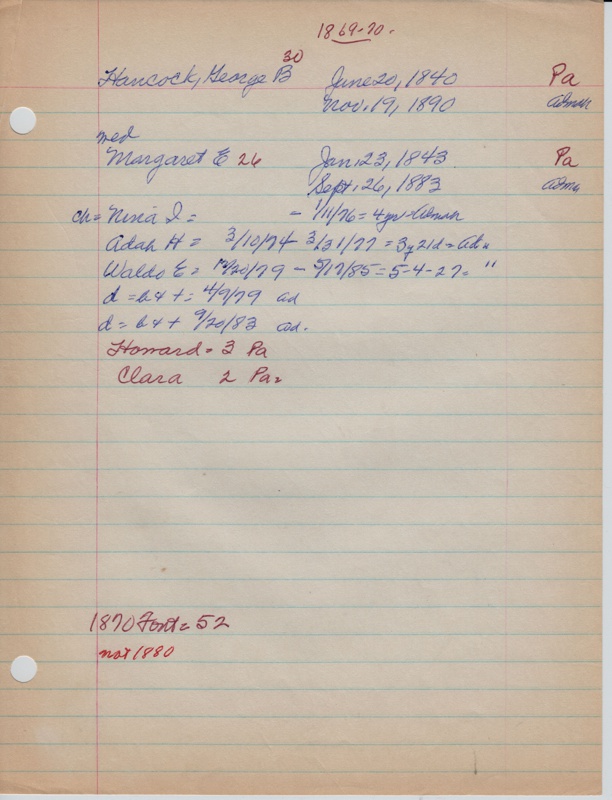 1869-70.
30
Hancock, George B June 20, 1840 Pa
Nov. 19, 1890 admn
med
Margaret E 26 Jan. 23, 1843 Pa
Sept. 26, 1883 adms
ch = Nina I = - 1/11/76 = 4yr = admsn
Adah H = 3/10/74 3/31/77 = 3y21d = ad "
Waldo E = 12/20/79 - 5/17/85 = 5-4-27 = "
d = b & t = 4/9/79 ad
d = b & t 9/20/83 ad.
Howard = 3 Pa
Clara 2 Pa =
1870 Font = 52
not 1880